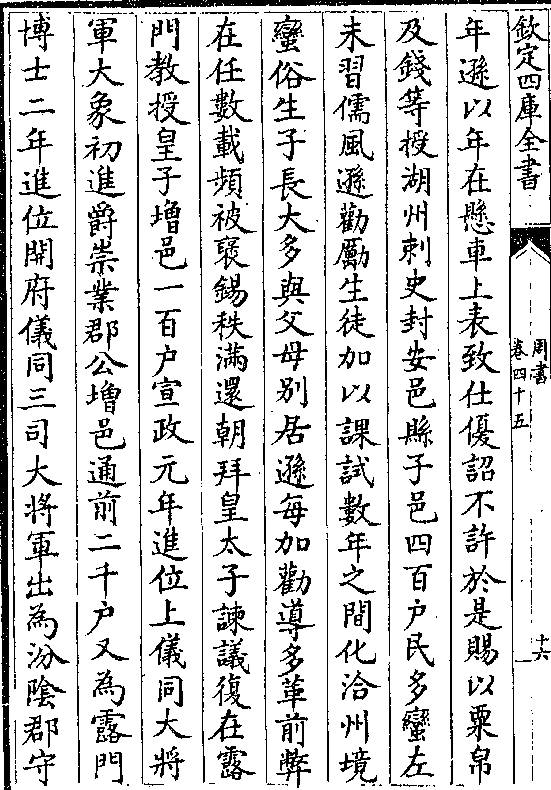 欽定四庫全書
周書
卷四十五
十六
年遜以年在懸車上表致仕優詔不許於是賜以粟帛
及錢等授湖州刺史封安邑縣子邑四百户民多蠻左
未習儒風遜勸勵生徒加以課試數年之間化洽州境
蠻俗生子長大多與父母别居遜每加勸導多革前弊
在任數載頻被襃錫秩滿還朝拜皇太子諫議復在露
門教授皇子增邑一百户宣政元年進位上儀同大將
軍大象初進爵崇業郡公增邑通前二千户又為露門
博士二年進位開府儀同三司大將軍出為汾陰郡守